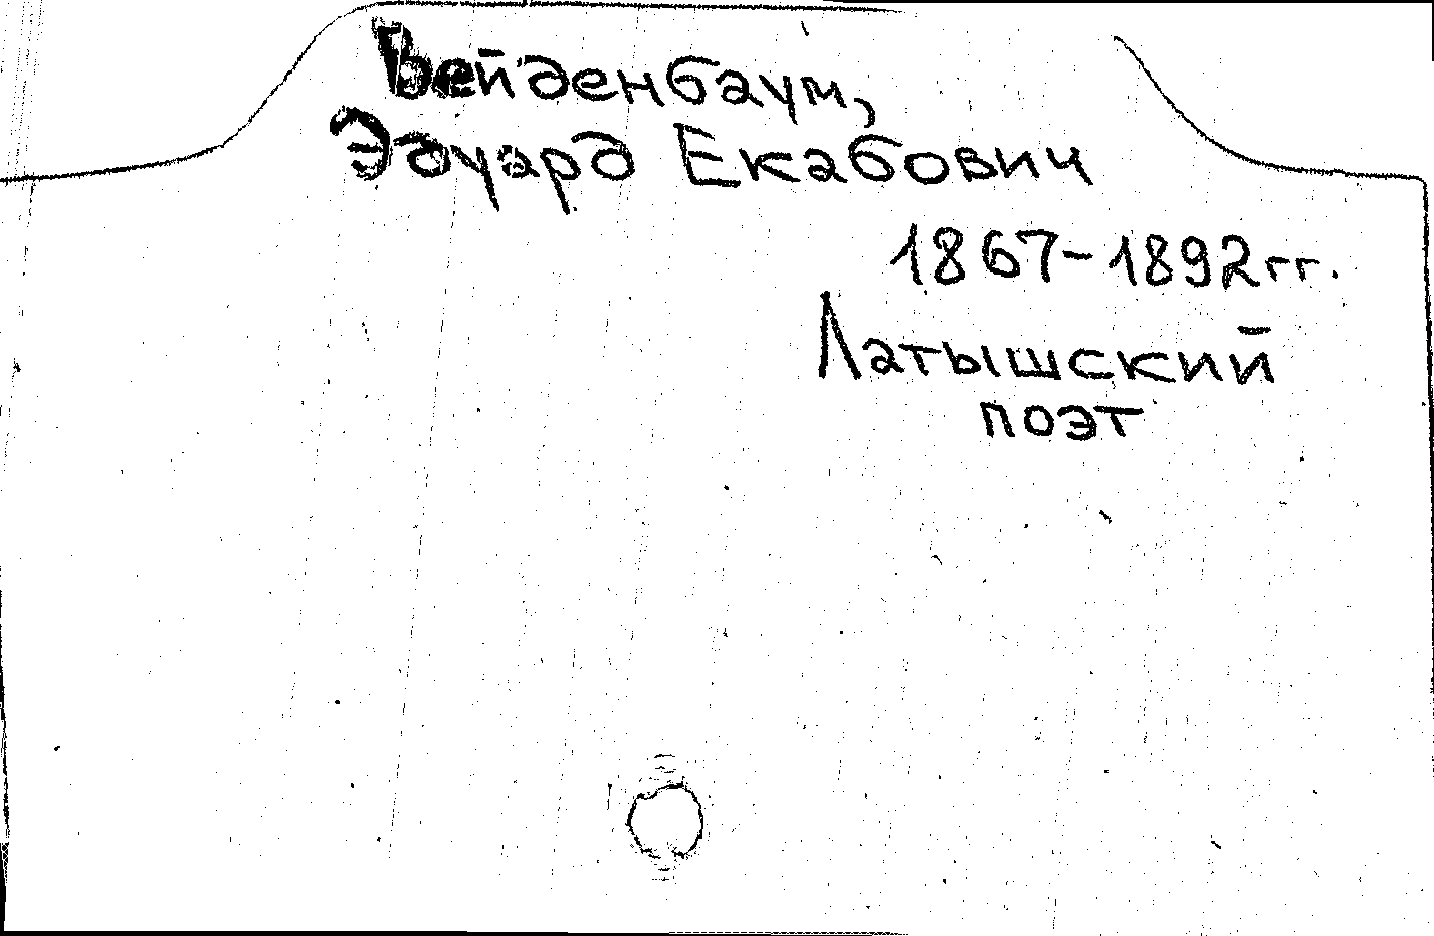 Вейденбаум,
Эдуард Екабович
1867-1892гг.
Латышский
поэт